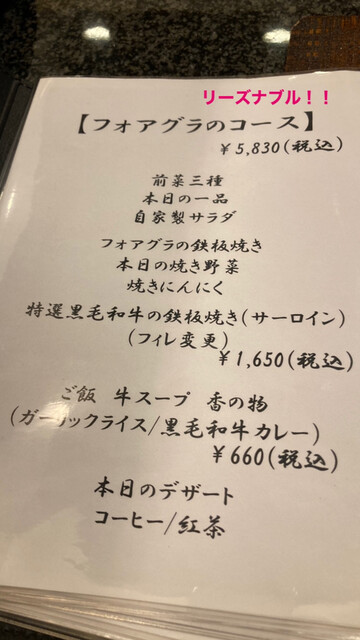 リーズナブル！！
【フォアグラのコース】
￥5,830(税込)
前菜三種
本日の一品
自家製サラダ
フォアグラの鉄板焼き
本日の焼き野菜
焼きにんにく
特選黒毛和牛の鉄板焼き(サーロイン)
(フィレ変更)
￥1,650(税込)
ご飯 牛スープ 香の物
(ガーリックライス/黒毛和牛カレー)
￥660(税込)
本日のデザート
コーヒー/紅茶